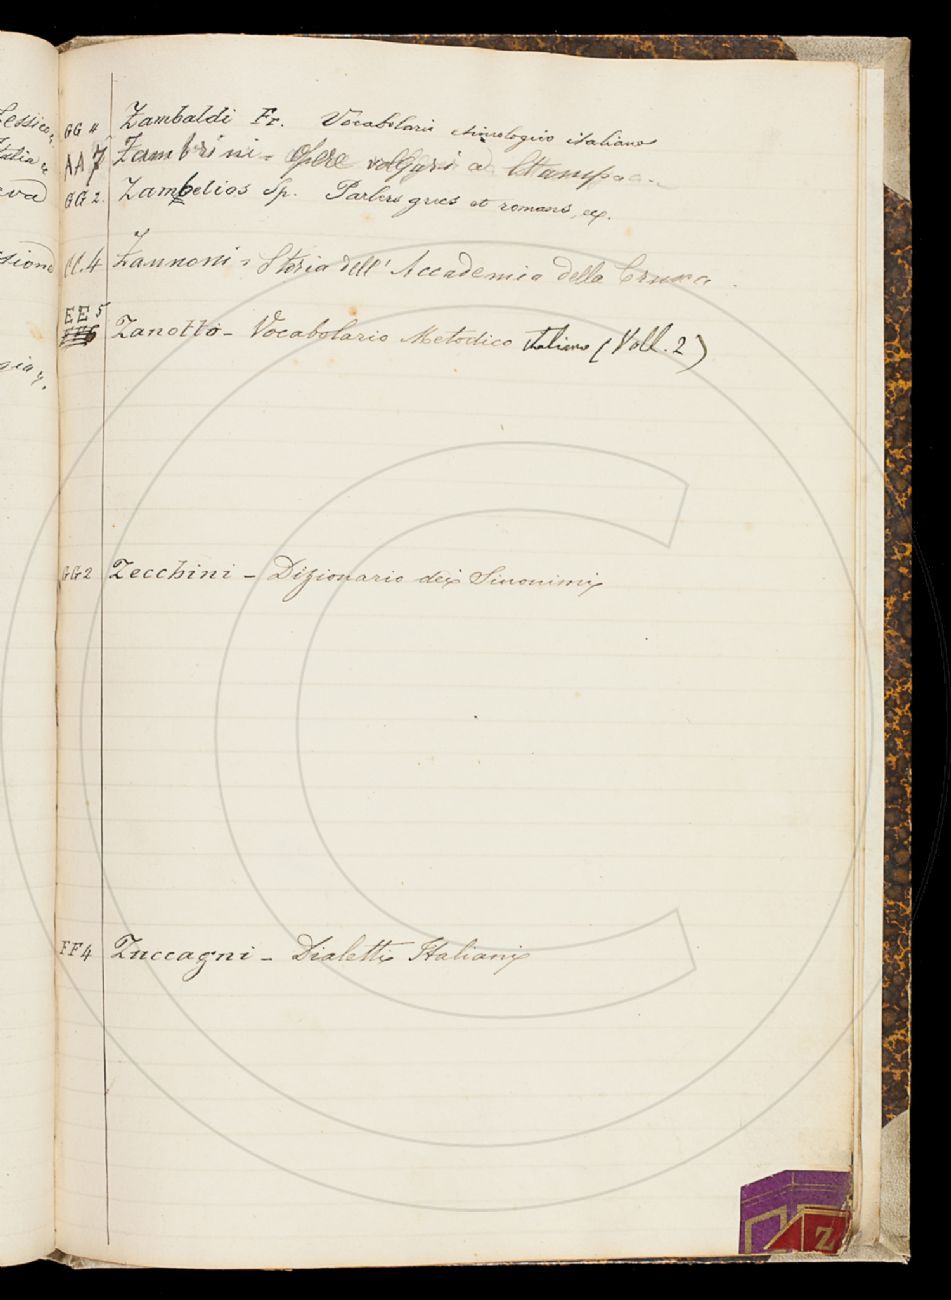 GG 4 Zambaldi Fr. Vocabolario etimologico italiano
AA 7 Zambrini - Opere volgari a Stampa
GG 2. Zambelios Sp. Parlers grecs et romans, ecc.
CC.4 Zannoni = Storia dell' Accademia della Crusca.
EE 5
Zanotto - Vocabolario Metodico italiano (Voll. 2)
GG2 Zecchini - Dizionario dei Sinonimi
FF4 Zuccagni - Dialetti Italiani
Z